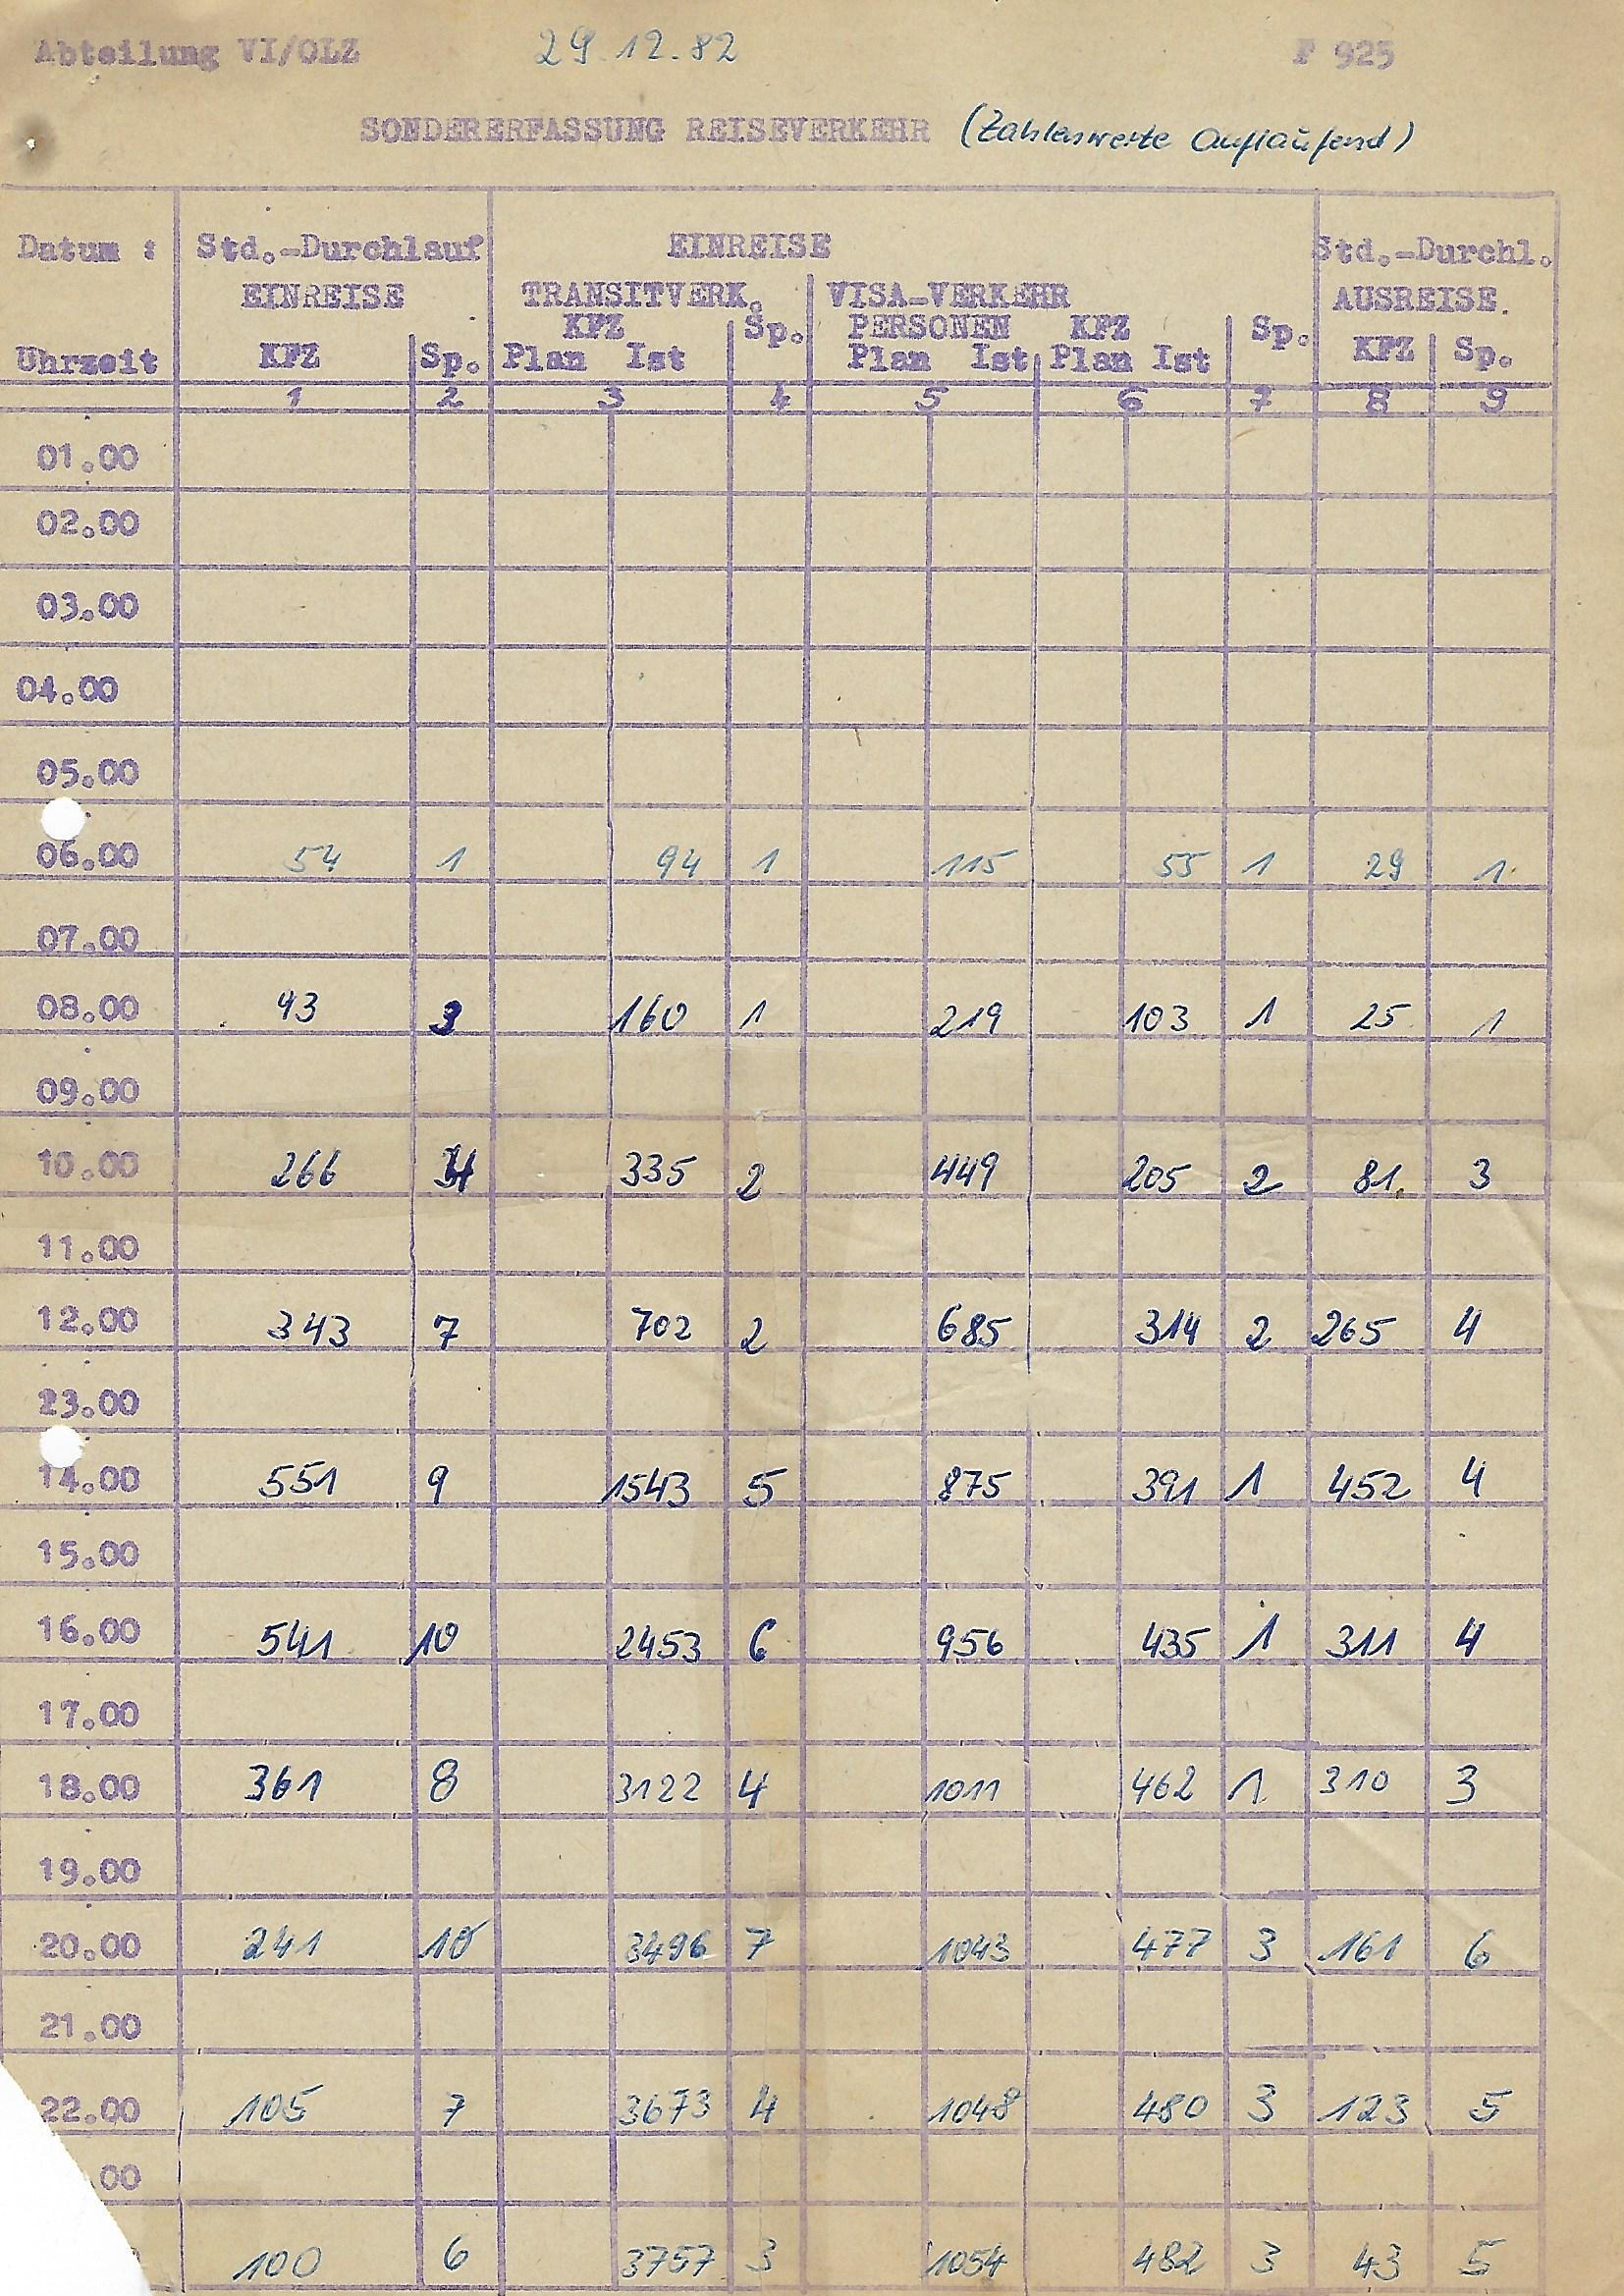 Abteilung VI/OLZ 29.12.82 F 925
SONDERERFASSUNG REISEVERKEHR (Zahlenwerte auflaufend)
Datum : Std.-Durchlauf EINREISE Std.-Durchl.
EINREISE TRANSITVERK. VISA-VERKEHR AUSREISE.
KFZ Sp. PERSONEN KFZ Sp.
Uhrzeit KFZ Sp. Plan Ist Plan Ist Plan Ist KFZ Sp.
1 2 3 4 5 6 7 8 9
01.00
02.00
03.00
04.00
05.00
06.00 54 1 94 1 115 55 1 29 1
07.00
08.00 43 3 160 1 219 103 1 25 1
09.00
10.00 266 4 335 2 449 205 2 81 3
11.00
12.00 343 7 702 2 685 314 2 265 4
23.00
14.00 551 9 1543 5 875 391 1 452 4
15.00
16.00 541 10 2453 6 956 435 1 311 4
17.00
18.00 361 8 3122 4 1011 462 1 310 3
19.00
20.00 241 10 3496 7 1043 477 3 161 6
21.00
22.00 105 7 3673 4 1048 480 3 123 5
.00
100 6 3757 3 1054 482 3 43 5